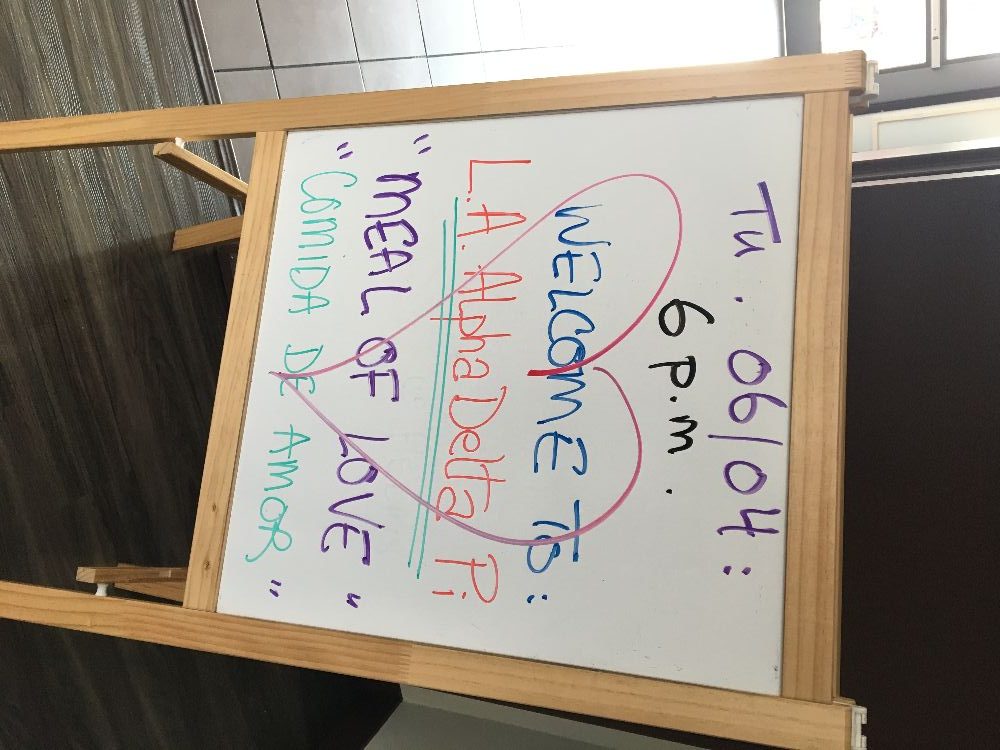 Tu. 06/04:
6 p.m.
WELCOME TO:
L.A. Alpha Delta Pi
"MEAL OF LOVE"
"COMIDA DE AMOR"